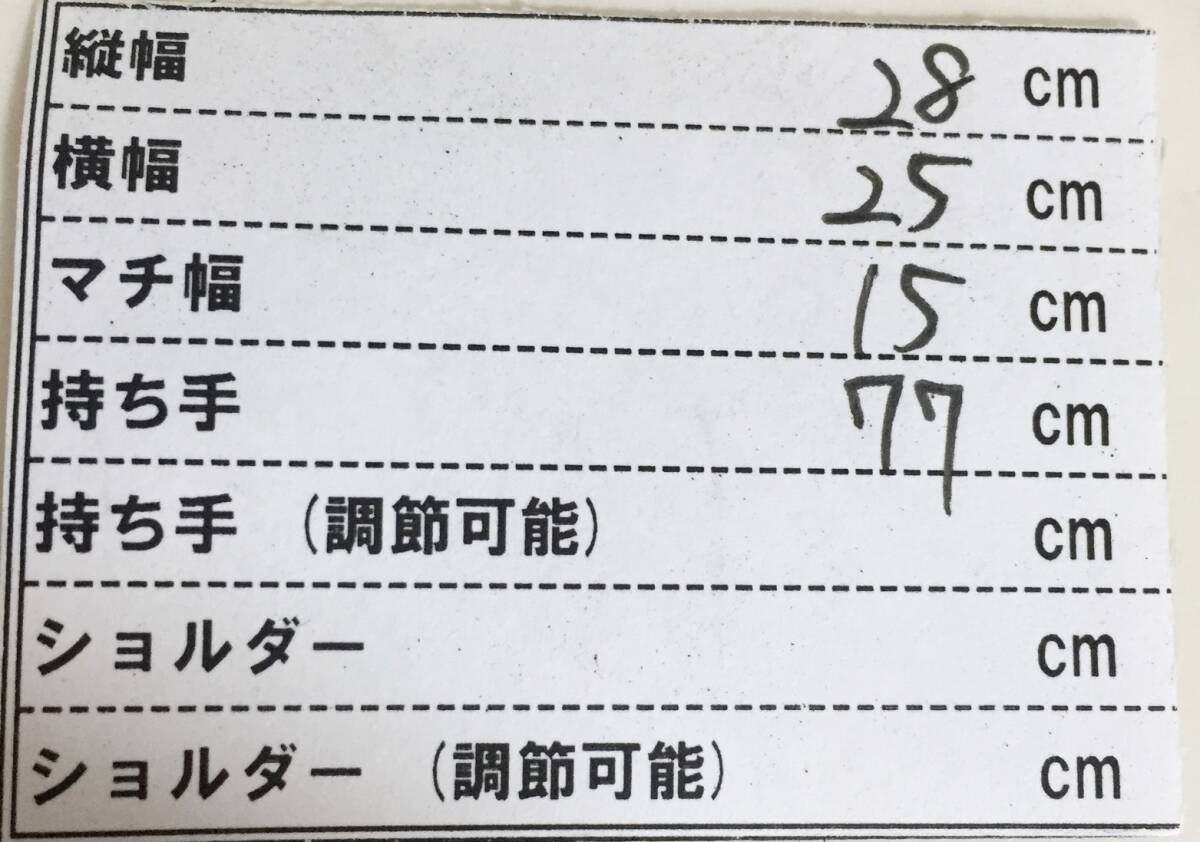 縦幅 28 cm
横幅 25 cm
マチ幅 15 cm
持ち手 77 cm
持ち手 (調節可能) cm
ショルダー cm
ショルダー (調節可能) cm